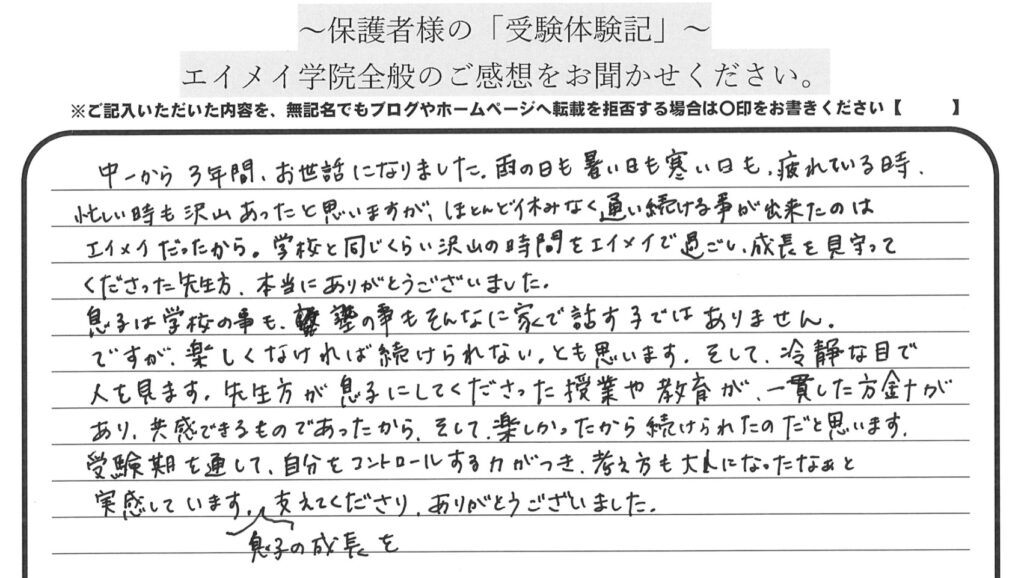 ~保護者様の「受験体験記」~
エイメイ学院全般のご感想をお聞かせください。
※ご記入いただいた内容を、無記名でもブログやホームページへ転載を拒否する場合は〇印をお書きください【　　】
中一から3年間、お世話になりました。雨の日も暑い日も寒い日も、疲れている時、
忙しい時も沢山あったと思いますが、ほとんど休みなく通い続ける事が出来たのは
エイメイだったから。学校と同じくらい沢山の時間をエイメイで過ごし、成長を見守って
くださった先生方、本当にありがとうございました。
息子は学校の事も、塾の事もそんなに家で話す子ではありません。
ですが、楽しくなければ続けられない。とも思います。そして、冷静な目で
人を見ます。先生方が息子にしてくださった授業や教育が、一貫した方針が
あり、共感できるものであったから、そして、楽しかったから続けられたのだと思います。
受験期を通して、自分をコントロールする力がつき、考え方も大人になったなぁと
実感しています。支えてくださり、ありがとうございました。
息子の成長を